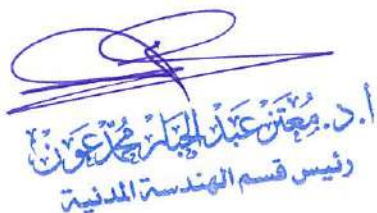 أ.د. مُعتز عَبد الجبار مُحمّد عَون
رئيس قسم الهندسة المدنية